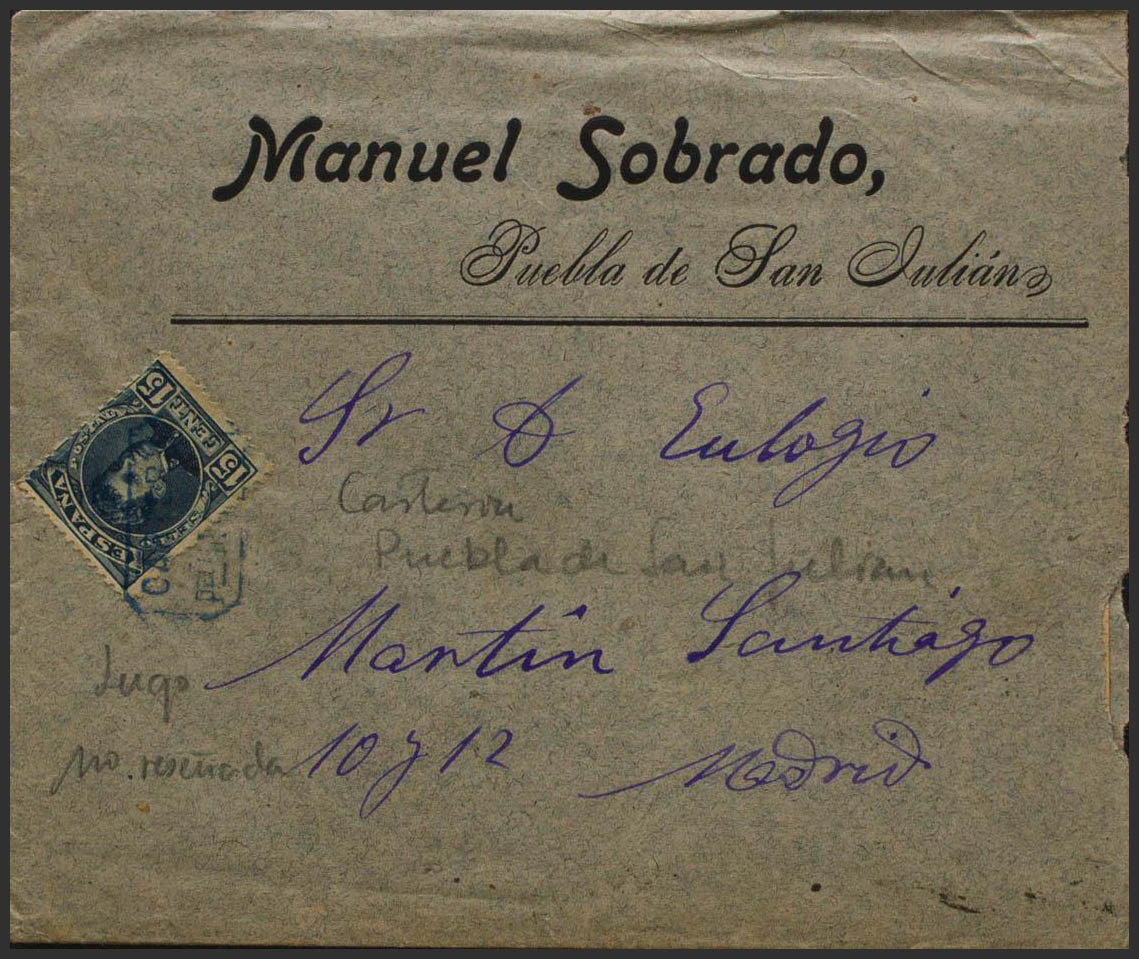 Manuel Sobrado,
Puebla de San Julián
15 15
CENTS
POSTAL
ESPAÑA
Sr D Eulogio
Puebla de San Julian
Martin Santiágo
Lugo
no. reseñada
10 y 12 Madrid